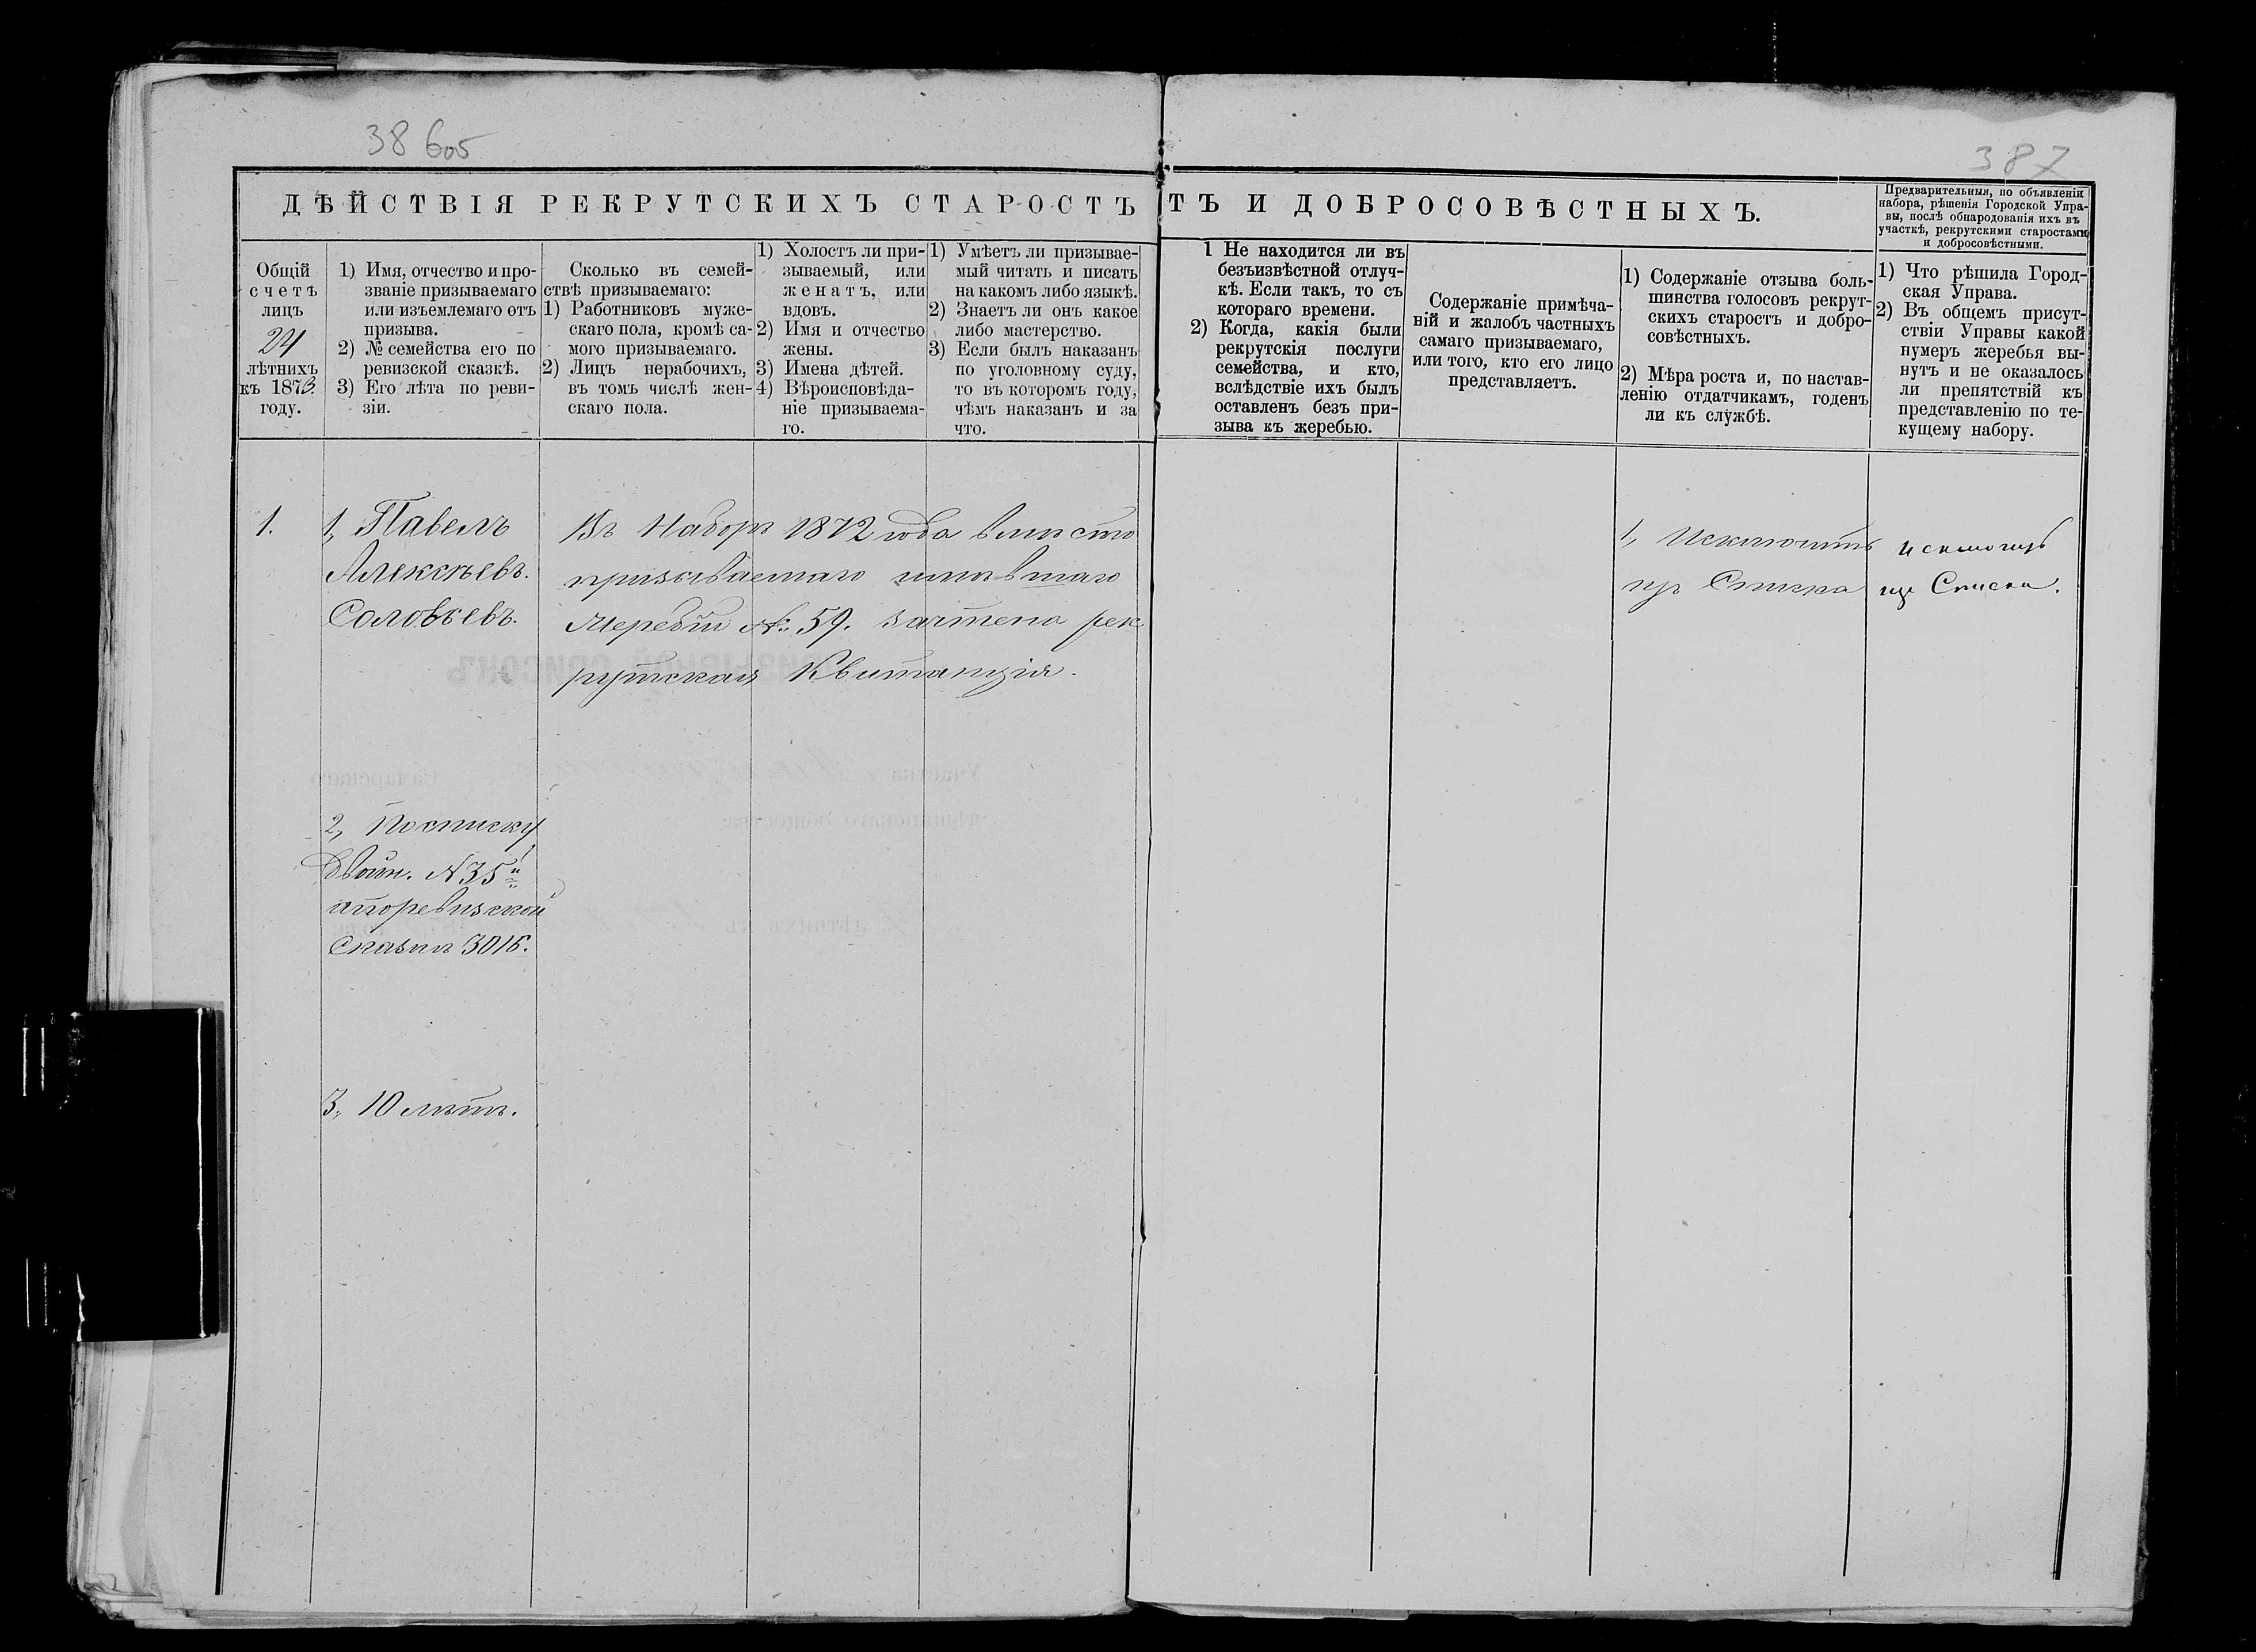 38 605
387
ДѢЙСТВІЯ РЕКРУТСКИХЪ СТАРОСТЪ
ТЪ И ДОБРОСОВѢСТНЫХЪ.
Общій
счетъ
лицъ
24
лѣтнихъ
къ 1873
году.
1) Имя, отчество и про-
званіе призываемаго
или изъемлемаго отъ
призыва.
2) № семейства его по
ревизской сказкѣ.
3) Его лѣта по реви-
зіи.
Сколько въ семей-
ствѣ призываемаго:
1) Работниковъ муже-
скаго пола, кромѣ са-
мого призываемаго.
2) Лицъ нерабочихъ,
въ томъ числѣ жен-
скаго пола.
1) Холостъ ли при-
зываемый, или
женатъ, или
вдовъ.
2) Имя и отчество
жены.
3) Имена дѣтей.
4) Вѣроисповѣда-
ніе призываема-
го.
1) Умѣетъ ли призывае-
мый читать и писать
на какомъ либо языкѣ.
2) Знаетъ ли онъ какое
либо мастерство.
3) Если былъ наказанъ
по уголовному суду,
то въ которомъ году,
чѣмъ наказанъ и за
что.
1 Не находится ли въ
безъизвѣстной отлуч-
кѣ. Если такъ, то съ
котораго времени.
2) Когда, какія были
рекрутскія послуги
семейства, и кто,
вслѣдствіе ихъ былъ
оставленъ безъ при-
зыва къ жеребью.
Содержаніе примѣча-
ній и жалобъ частныхъ
самаго призываемаго,
или того, кто его лицо
представляетъ.
1) Содержаніе отзыва боль-
шинства голосовъ рекрут-
скихъ старостъ и добро-
совѣстныхъ.
2) Мѣра роста и, по настав-
ленію отдатчикамъ, годенъ
ли къ службѣ.
Предварительныя, по объявленіи
набора, рѣшенія Городской Упра-
вы, послѣ обнародованія ихъ въ
участкѣ, рекрутскими старостами
и добросовѣстными.
1) Что рѣшила Город-
ская Управа.
2) Въ общемъ присут-
ствіи Управы какой
нумеръ жеребья вы-
нутъ и не оказалось
ли препятствій къ
представленію по те-
кущему набору.
1.
1, Павелъ
Алексѣевъ.
Соловьевъ.
2, По списку
двойн. № 35
а по ревизской
Сказкѣ 3016.
3, 10 лѣтъ.
Въ Наборъ 1872 года вмѣсто
призываемаго имѣвшаго
Жеребій №. 59. зачтена рек
рутская Квитанція.
1, Исключить
изъ Списка
исключить
изъ Списка.